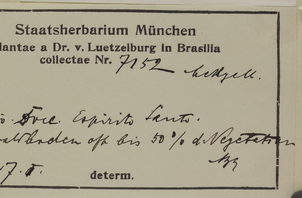 Staatsherbarium München
lantae a Dr. v. Luetzelburg in Brasilia
collectae Nr. 7152
Espirito Santo.
boden oft bis 50% d. Vegetation
determ.